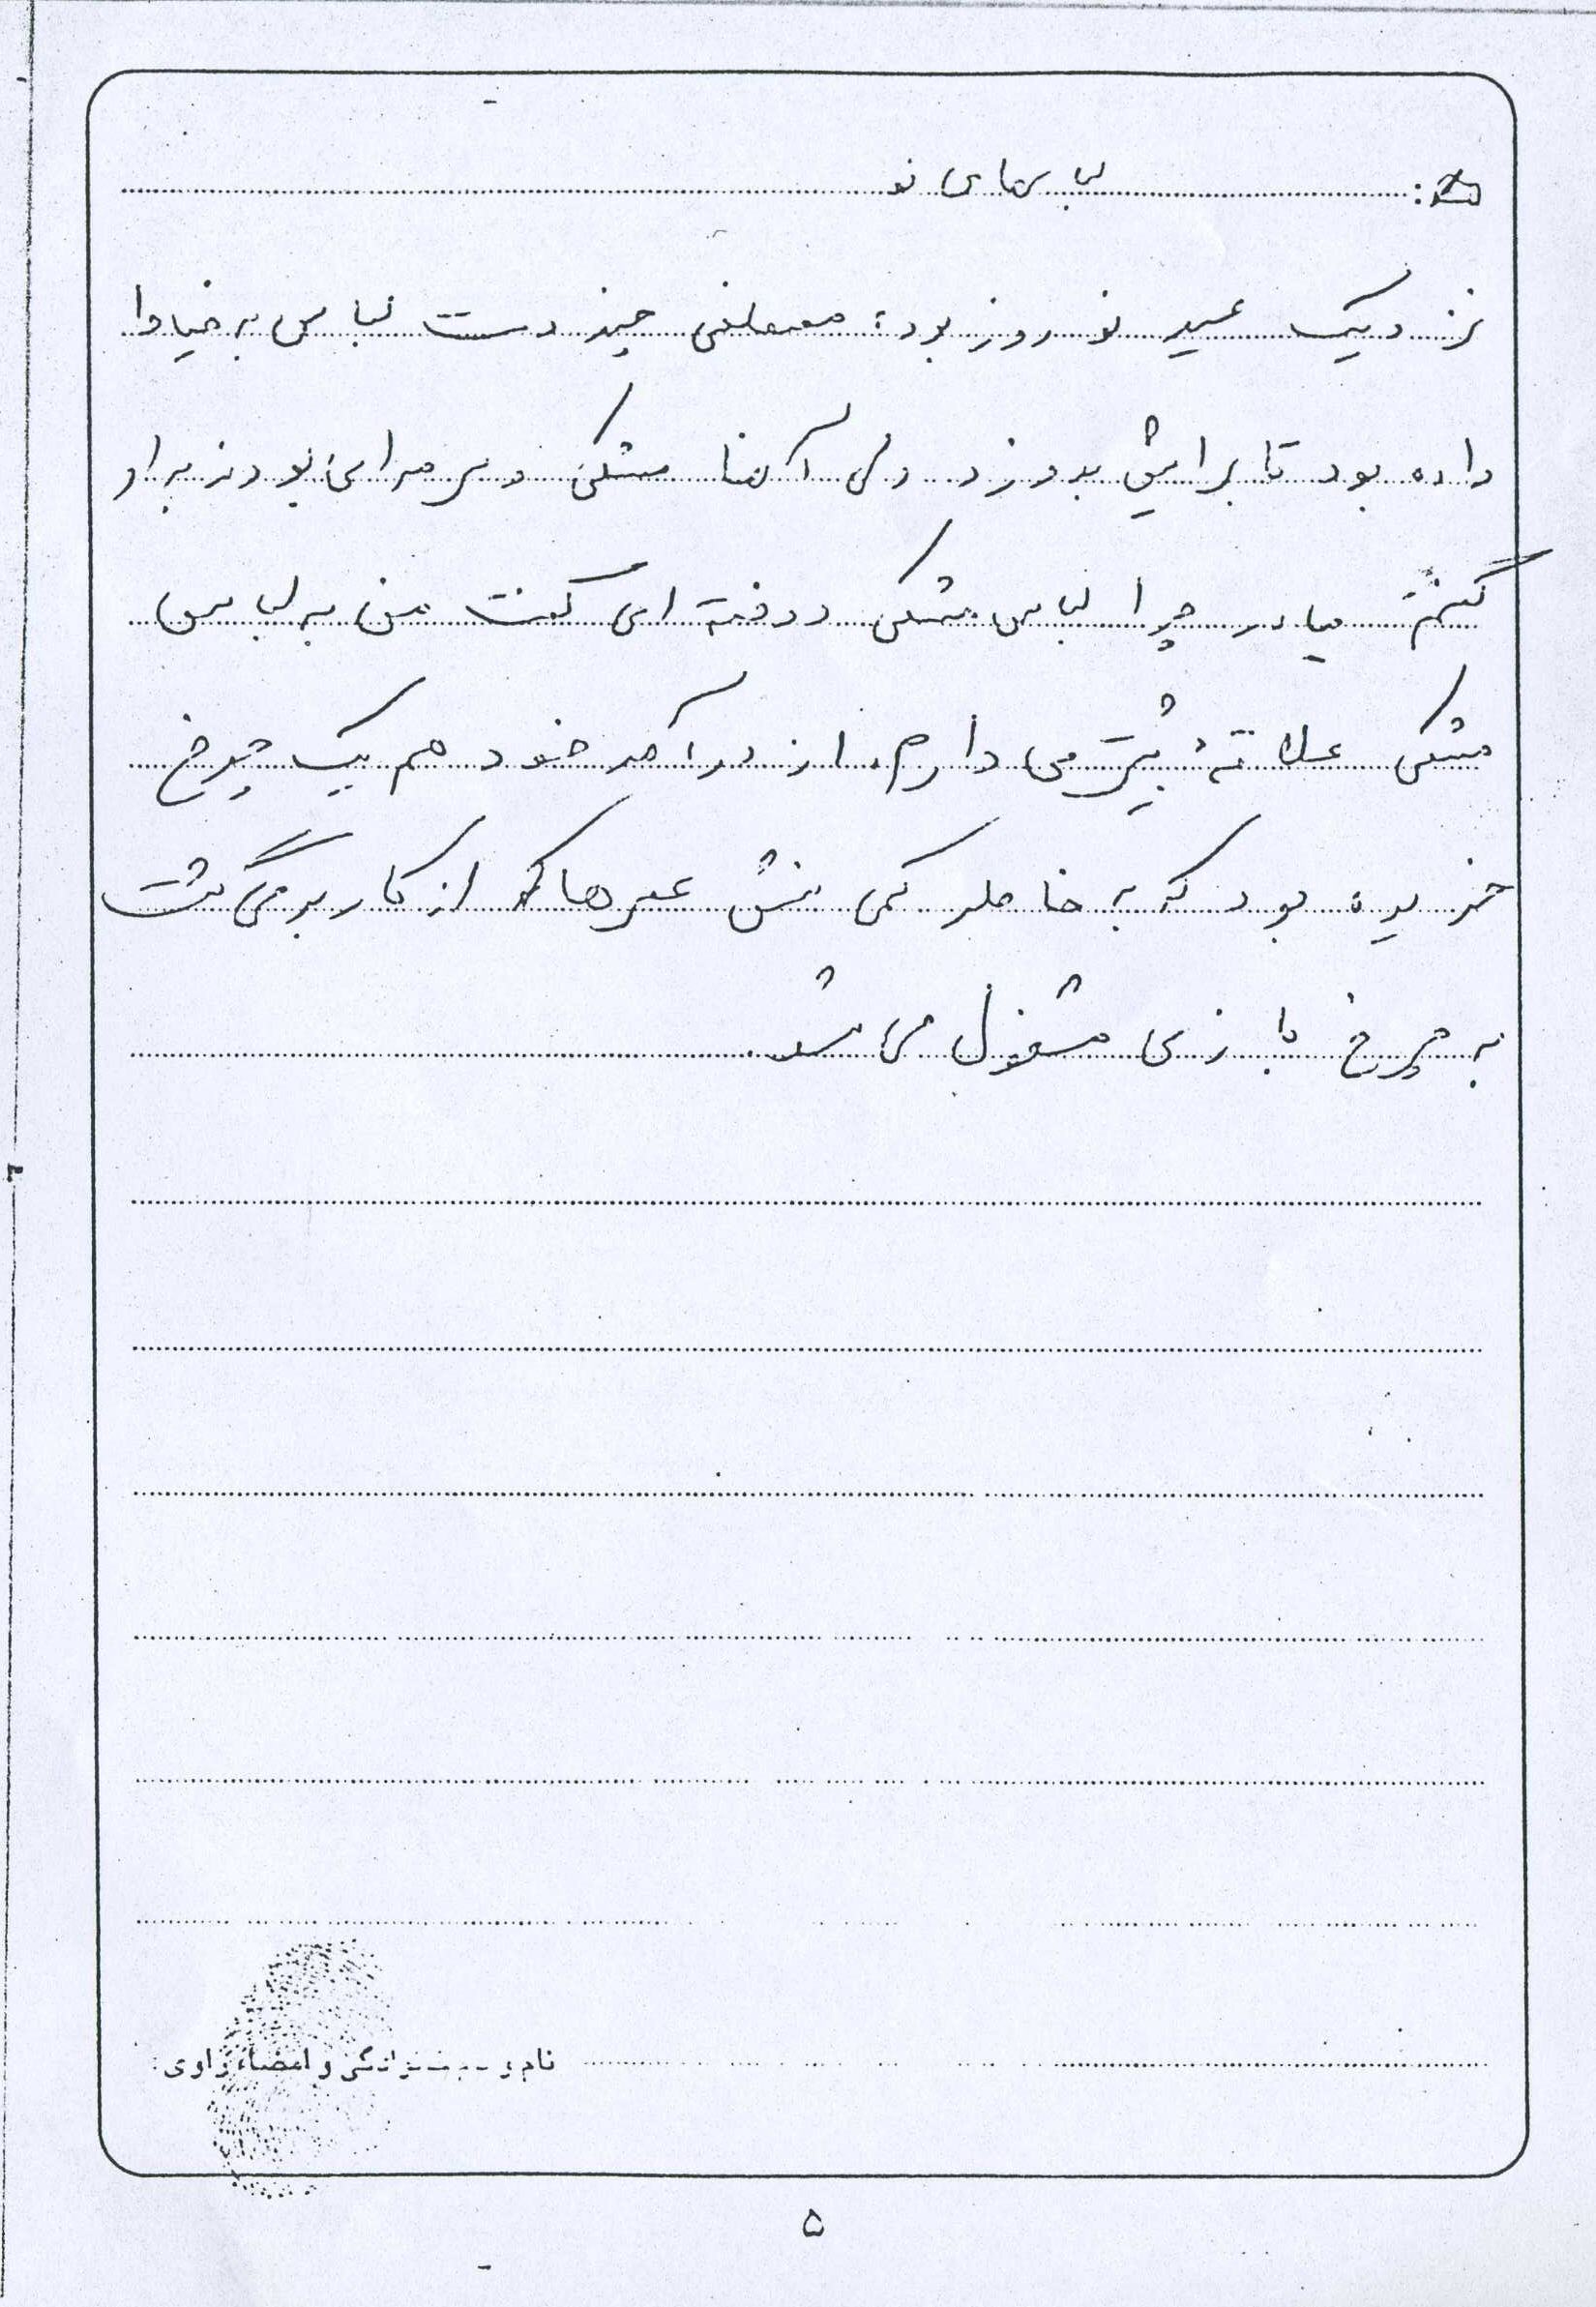 لباسهای نو
نزدیک عید نوروز بود. مصطفی چند دست لباس به خیاط
داده بود تا برایش بدوزد ولی آنها مشکی و سرمه‌ای بودند به او
گفتم مادر چرا لباس مشکی دوخته ای گفت من به لباس
مشکی علاقه بیشتری دارم. از درآمد خود هم یک چرخ
خریده بود که به خاطر کمی سنش عصرها که از کار برمی گشت
به چرخ بازی مشغول می شد.
نام و نام خانوادگی و امضاء راوی:
۵